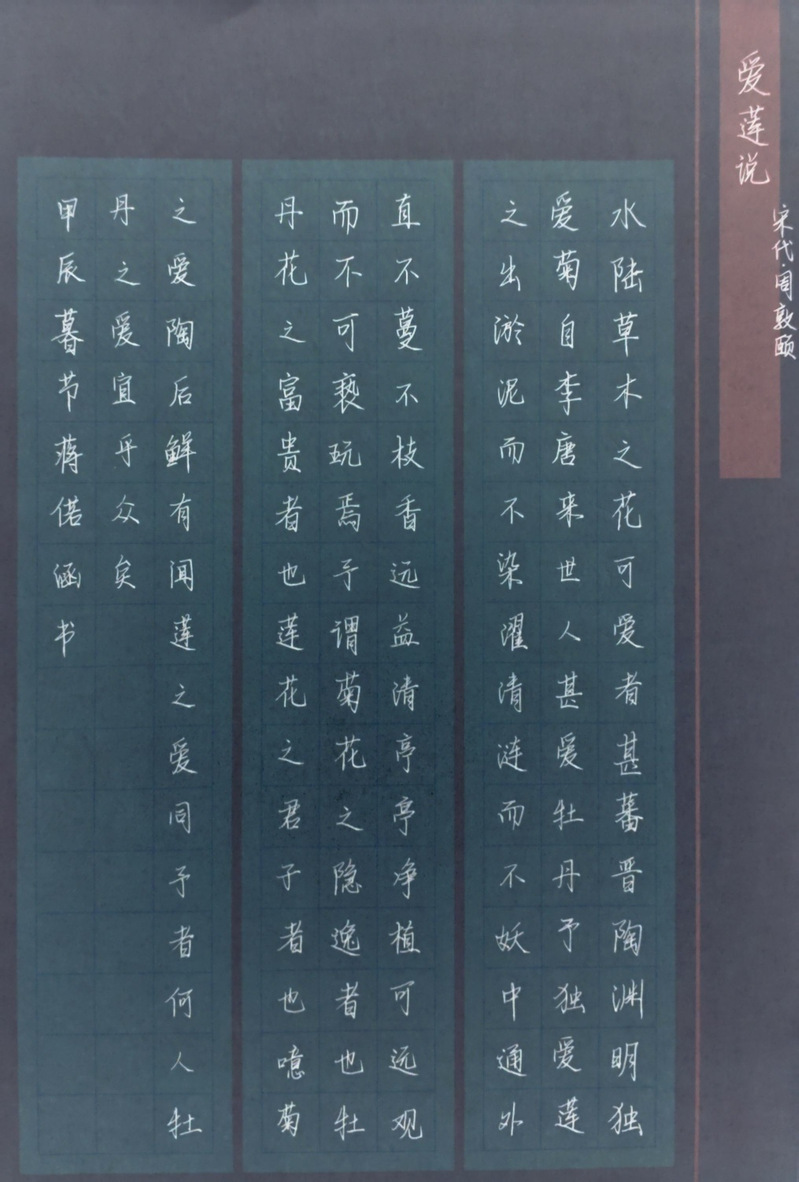 爱莲说
宋代·周敦颐
水陆草木之花可爱者甚蕃晋陶渊明独
爱菊自李唐来世人甚爱牡丹予独爱莲
之出淤泥而不染濯清涟而不妖中通外
直不蔓不枝香远益清亭亭净植可远观
而不可亵玩焉予谓菊花之隐逸者也牡
丹花之富贵者也莲花之君子者也噫菊
之爱陶后鲜有闻莲之爱同予者何人牡
丹之爱宜乎众矣
甲辰暮节蒋偌涵书